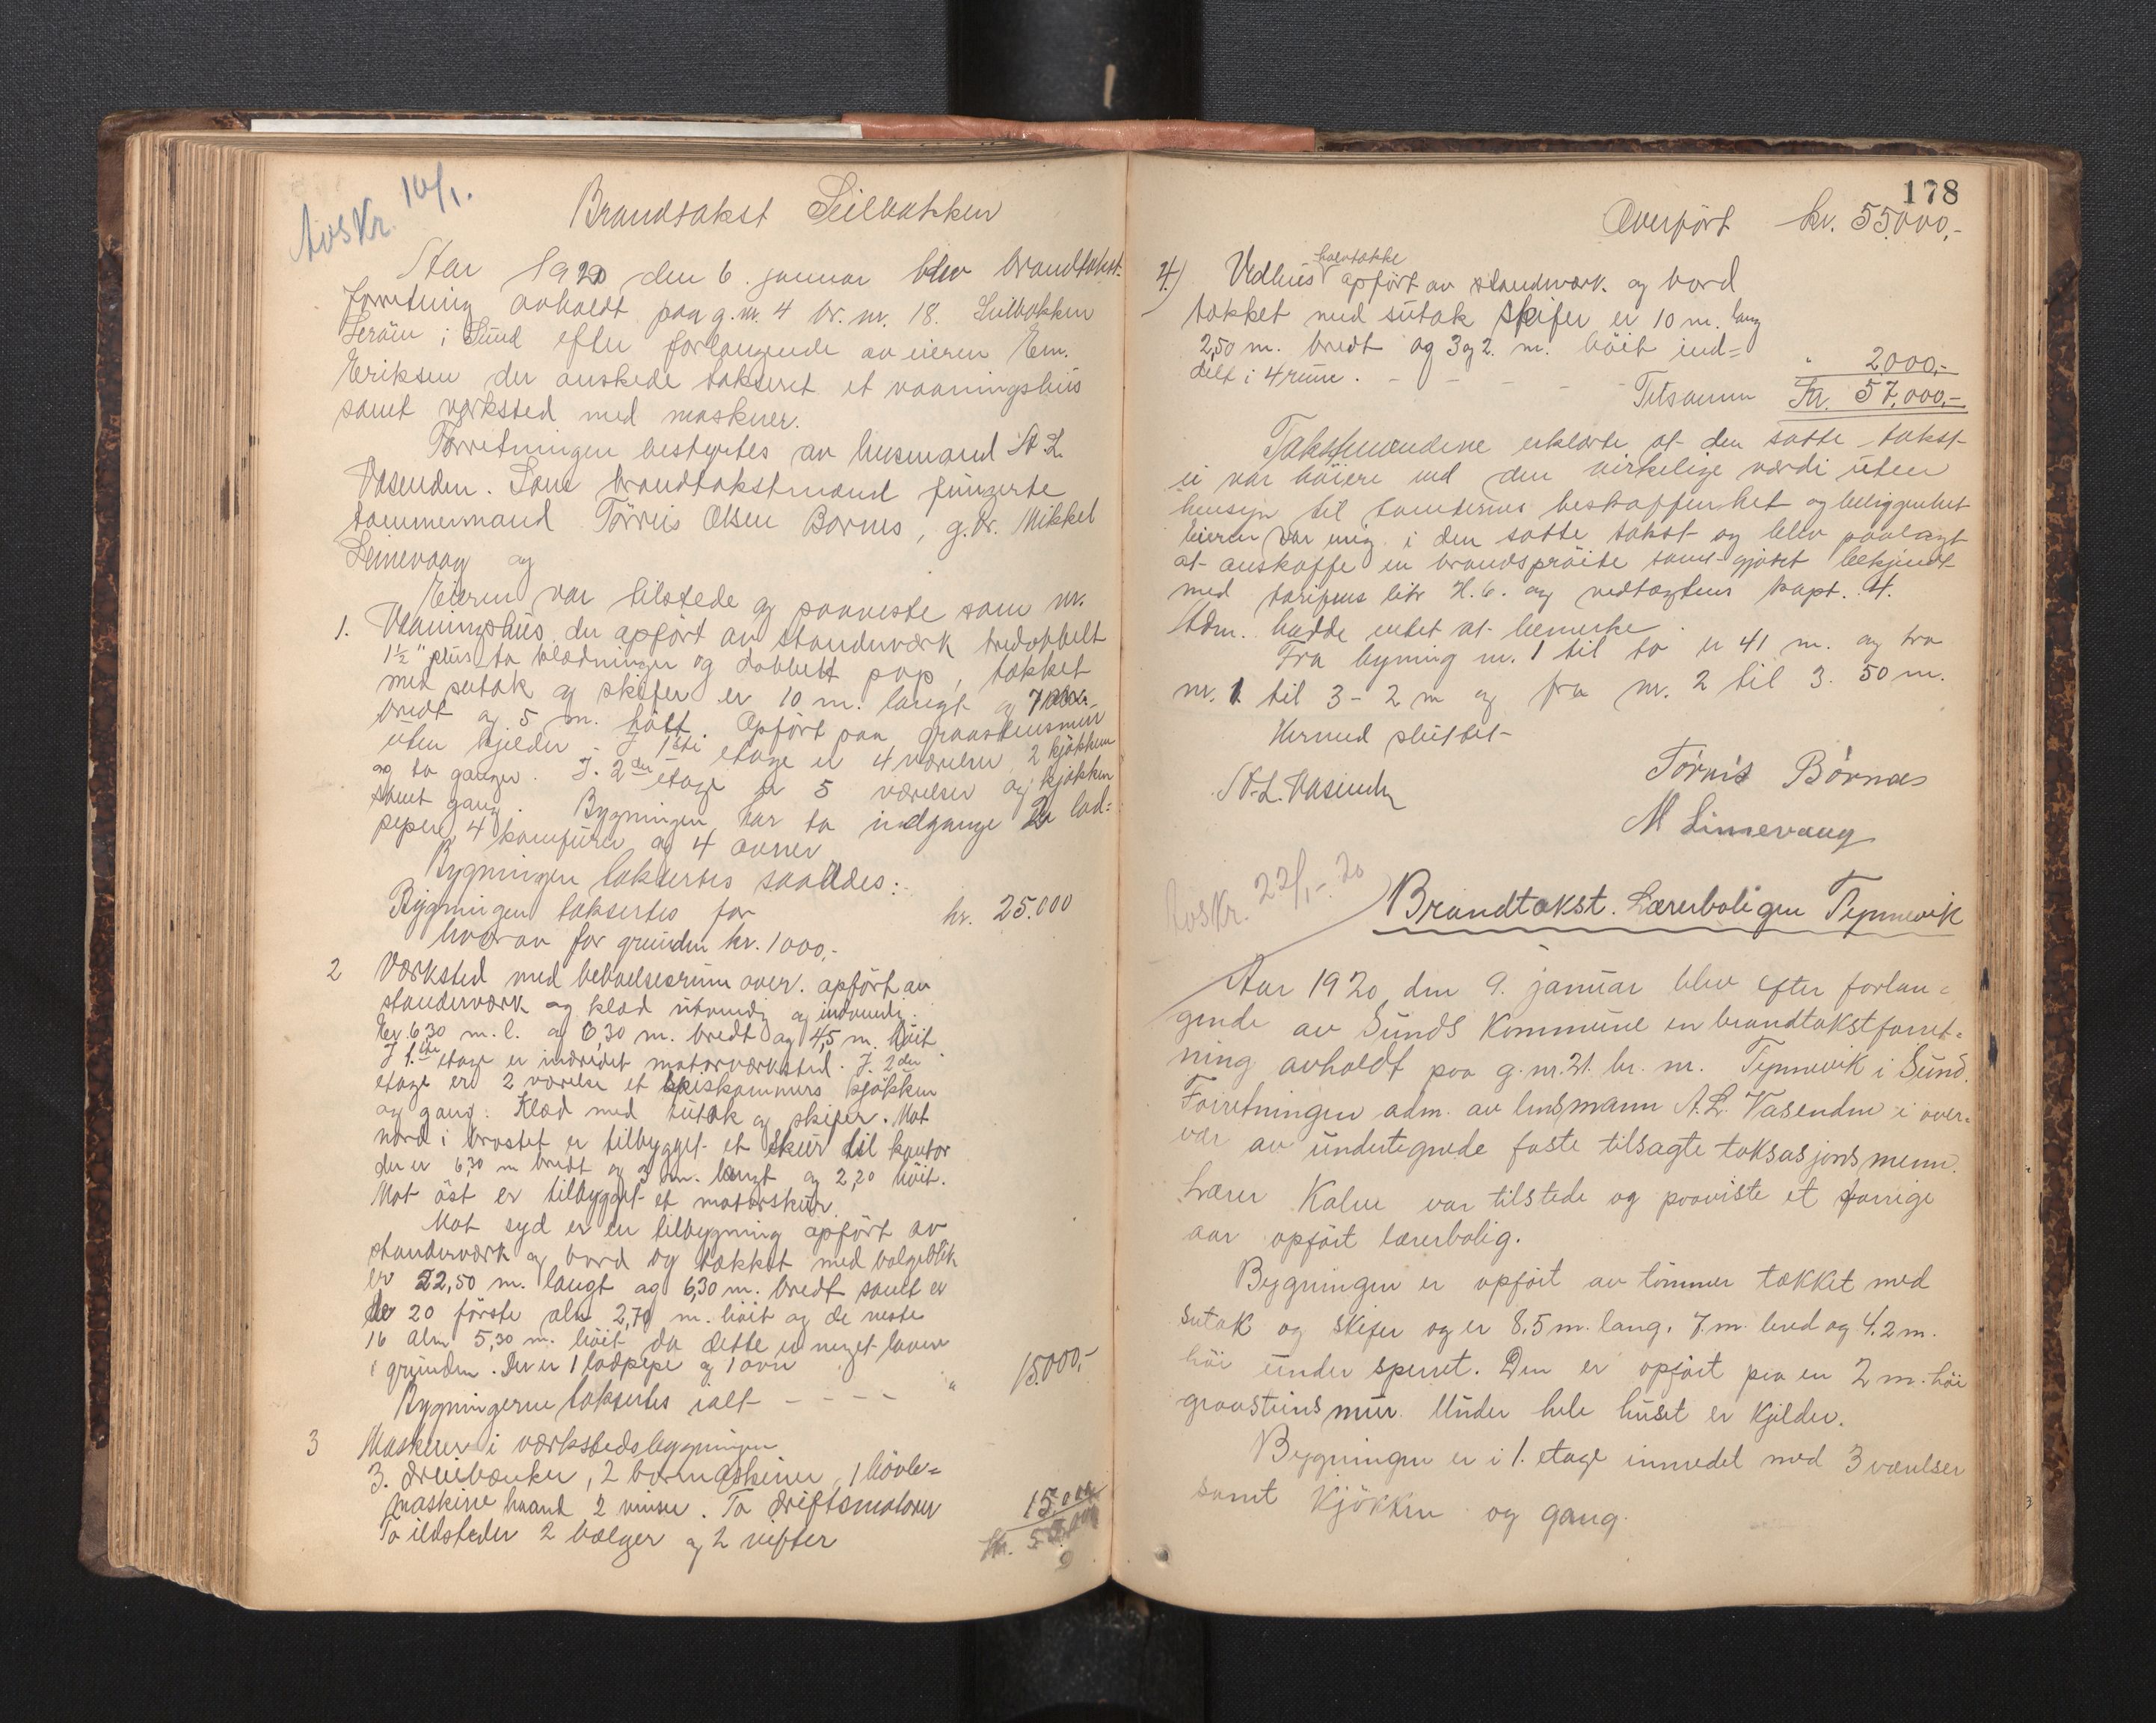 Avskr. 10/1.
Brandtakst Leilbakken
Aar 1920 den 6. januar blev brandtakst-
forretning avholdt paa g.nr. 4 br. nr. 18. Leilbakken
Leröin i Sund efter forlangende av eieren Em.
Eriksen der önskede takseret et vaaningshus
samt verksted med maskiner.
Forretningen bestyrtes av lensmand A L
Vasenden. Som brandtakstmænd fungerte
tømmermand Törris Olsen Børnes, g.br. Mikkel
Linnevaag og
Eieren var tilstede og paaviste som nr.
1. Vaaningshus der opført av standerværk tredobbelt
1½" plus to klædninger og dobbelt pap, tækket
med sutak og skifer er 10 m. langt og 7
bredt og 5 m. höit. Opfört paa graastensmur
uten kjelder - I 1ste etage er 4 værelser 2 kjökken
og to ganger. I. 2den etage er 5 værelser og kjøkken
samt gang. Bygningen har to indgange 2 lod=
piper, 4 komfurer og 4 ovner
Bygningen takseres saaledes:
Bygningen takseres for kr. 25.000
hvorav for grunden kr. 1000,-
2 Værksted med beboelsesrum over. opført av
standerværk og klæd utvendig og indvendig.
Er 6,30 m. l. og 6,30 m. bredt og 4,5 m. höit
I 1.ste etage er inredet motorværksted. I. 2den
etage er 2 værelse et spiskammers kjøkken
og gang. Klæd med sutak og skifer. Mot
nord i brøstet er tilbygget et skur til kontor
der er 6,30 m bredt og 3 m. langt og 2,20 höit.
Mot öst er tilbygget et motorskur.
Mot syd er en tilbygning opfört av
standerværk og bord og tækket med bølgeblik
er 22,50 m. langt og 6,30 m. bredt samt er
de 20 förste alen 2,70 m. höit og de neste
16 alen 5,30 m. höit da dette er noget lavere
i grunden. Der er 1 lodpipe og 1 ovn
Bygningerne takseres ialt - - - - " 15.000,-
3 Maskiner i værkstedsbygningen
3. dreiebænker, 2 bormaskiner, 1 hövle=
maskine haand 2 vinser. To driftsmotorer
To ildsteder 2 bælger og 2 vifter 15.000
kr. 55.000
178
Overfört kr. 55.000,-
4.) Vedhus halvtække opført av standværk. og bord
tækket med sutak skifer er 10 m. lang
2,50 m. bredt og 3 og 2. m. höit ind=
delt i 4 rum. - - - - - " 2.000,-
Tilsamm Kr. 57.000,-
Takstmændene erklærte at den satte takst
ei var höiere end den virkelige værdi uten
hensyn til tomternes beskaffenhet og beliggenhet
Eieren var enig i den satte takst og blev paalagt
at anskaffe en brandspröite samt gjort bekjendt
med tarifens litr H. 6. og vedtægtens kapt. 4.
Adm. hadde intet at bemerke.
Fra byning nr. 1 til to er 41 m. og fra
nr. 1 til 3 - 2 m og fra nr. 2 til 3. 50 m.
Hermed sluttet
A. L. Vasenden
Törris Børnes
M Linnevaag
Avskr. 22/1-20
Brandtakst. Lærerboligen Tyrnevik
Aar 1920 den 9. januar blev efter forlan=
gende av Sunds kommune en brandtakstforret=
ning avholdt paa g.nr. 21. br. nr. Tyrnevik i Sund.
Forretningen adm. av lensmann A.L. Vasenden i over=
vær av undertegnede faste tilsagte taksasjonsmenn.
Lærer Kalve var tilstede og paaviste et forrige
aar opfört lærerbolig.
Bygningen er opfört av tömmer tækket med
sutak og skifer og er 8,5 m. lang, 7. m. bred og 4.2 m.
höi under sperret. Den er opfört paa en 2 m. höi
graasteinsmur. Under hele huset er kjelder.
Bygningen er i 1. etage innredet med 3 værelser
samt kjökken og gang.